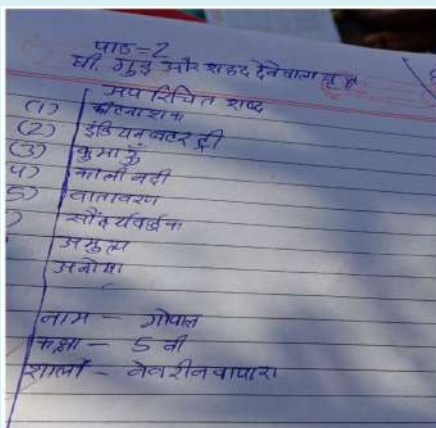 पाठ=2
घी, गुड़ और शहद देने वाला वृक्ष
अपरिचित शब्द
(1)
(2) इंडियन बटर ट्री
(3) कुमाऊँ
4) काली नदी
5) वातावरण
) सौंदर्यवर्द्धक
अमुल्य
अनोखा
नाम - गोपाल
कक्षा - 5 वी
शाला - नेवरीनवापारा